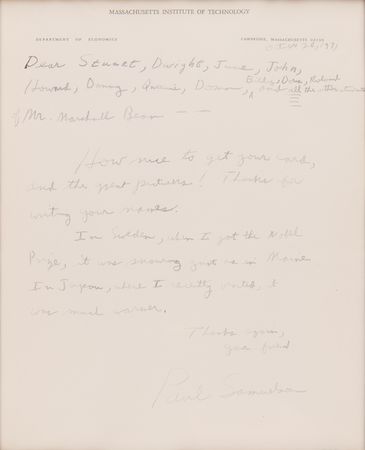 MASSACHUSETTS INSTITUTE OF TECHNOLOGY
DEPARTMENT OF ECONOMICS
CAMBRIDGE, MASSACHUSETTS
1971
Dear Stuart, Dwight, June, John,
Howard, Danny, Donna, and all the other students
of Mr. Marshall Bean — —
How nice to get your card,
and the great pictures! Thanks for
writing your names.
In Sweden, when I got the Nobel
Prize, it was snowing just as in Maine
In Japan, where I recently visited, it
was much warmer.
Thanks again,
your friend
Paul Samuelson